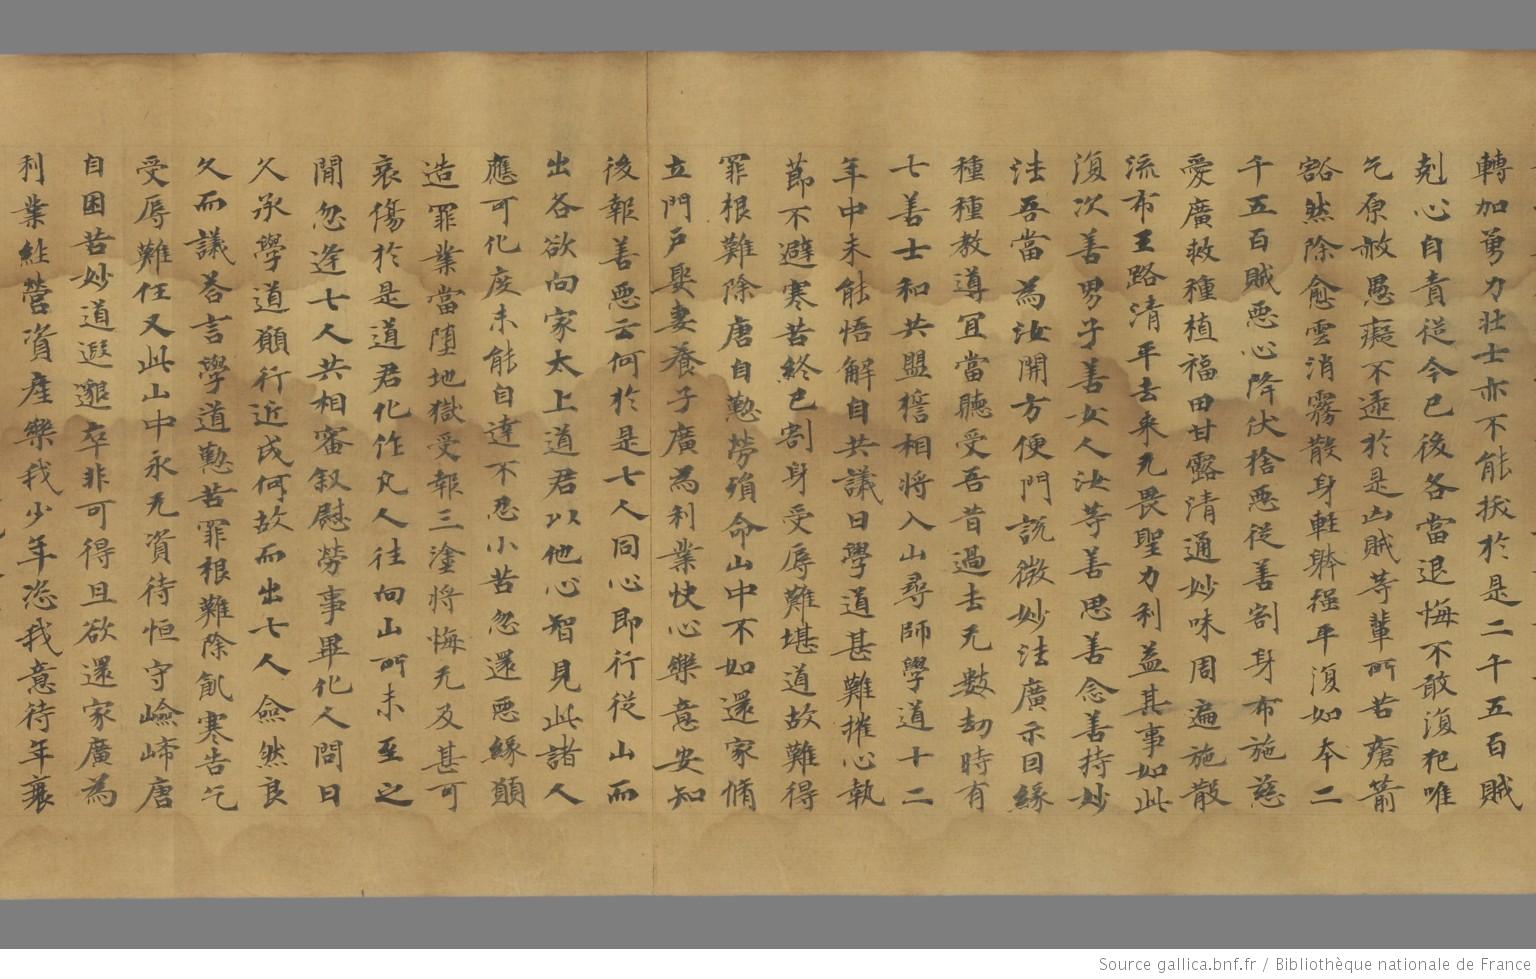 轉加勇力壯士亦不能拔於是二千五百賊
剋心自責從今已後各當退悔不敢復犯唯
乞原赦愚癡不逮於是凶賊等輩所苦瘡箭
豁然除愈雲消霧散身軽躰强平復如本二
千五百賊惡心降伏捨惡從善割身布施慈
愛廣救種植福田甘露清通妙味周遍施散
流布王路清平去来无畏聖力利益其事如此
復次善男子善女人汝等善思善念善持妙
法吾當為汝開方便門説微妙法廣示因緣
種種教導冝當聽受吾昔過去无數劫時有
七善士和共盟誓相將入山尋師學道十二
年中未能悟解自共議曰學道甚難摧心執
莭不避寒苦終已割身受辱難堪道故難得
罪根難除唐自懃勞殞命山中不如還家脩
立門戶娶妻養子廣為利業快心樂意安知
後報善惡云何於是七人同心即行從山而
出谷欲向家太上道君以他心智見此諸人
應可化度未能自達不忍小苦忽還惡緣顛
造罪業當堕地獄受報三塗將悔无及甚可
哀傷於是道君化作凡人往向山所未至之
閒忽逢七人共相審叙慰勞事畢化人問曰
久承學道願行近成何故而出七人僉然良
久而議荅言學道懃苦罪根難除飢寒告乞
受辱難任又此山中永无資待恒守嶮㟳唐
自困苦妙道遐邈卒非可得且欲還家廣為
利業經營資產樂我少年恣我意待年衰